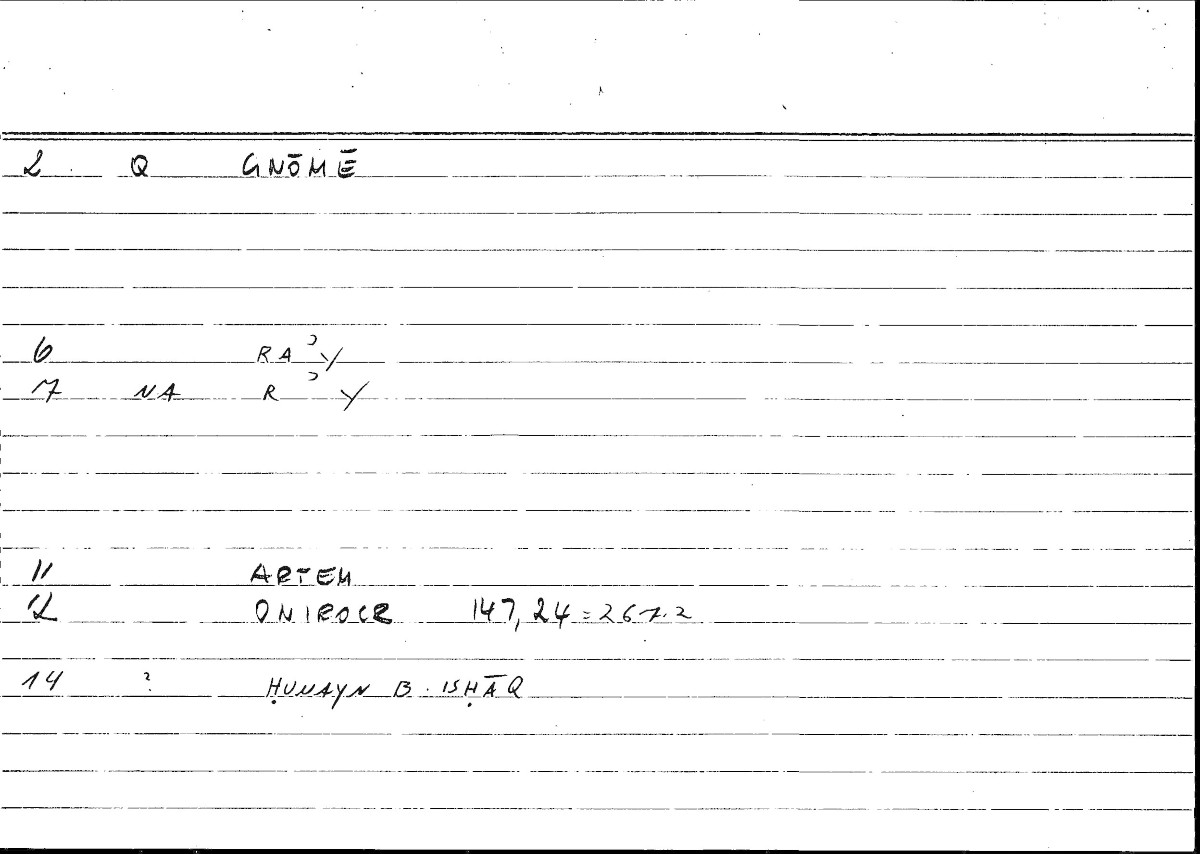 2 Q GNŌMĒ
6 RAʾY
7 NA RʾY
11 ARTEM
12 ONIROCR 147,24 = 267.2
14 ? ḤUNAYN B. ISḤĀQ